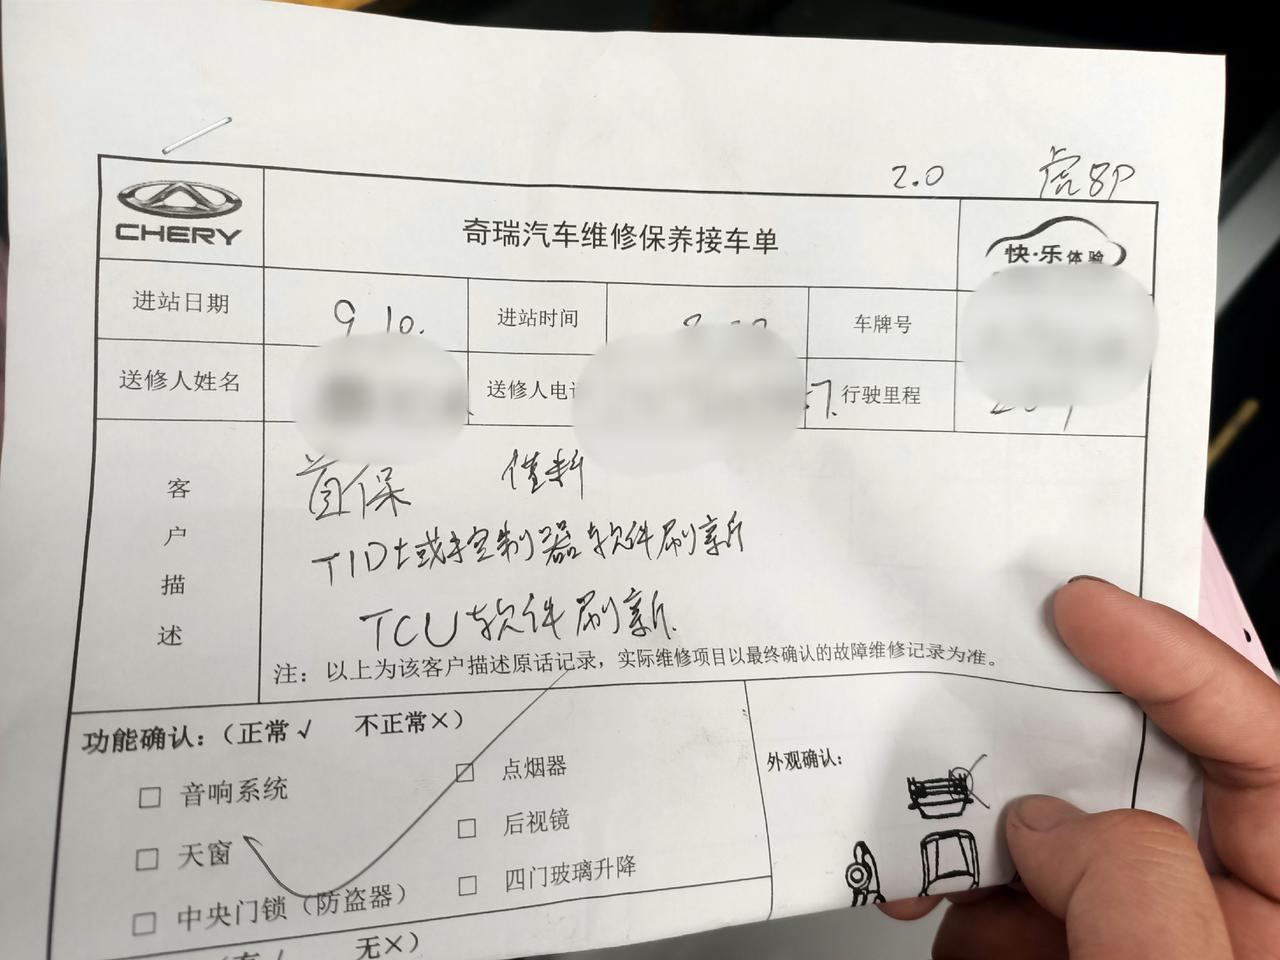 2.0 虎8P
CHERY
奇瑞汽车维修保养接车单
快·乐体验
进站日期 9 10. 进站时间 车牌号
送修人姓名 送修人电 7. 行驶里程
客户描述
首保 催料
TID土或控制器软件刷新
TCU软件刷新.
注：以上为该客户描述原话记录，实际维修项目以最终确认的故障维修记录为准。
功能确认：（正常√ 不正常×）
外观确认：
□ 音响系统 □ 点烟器
□ 天窗 □ 后视镜
□ 中央门锁（防盗器） □ 四门玻璃升降
无×）